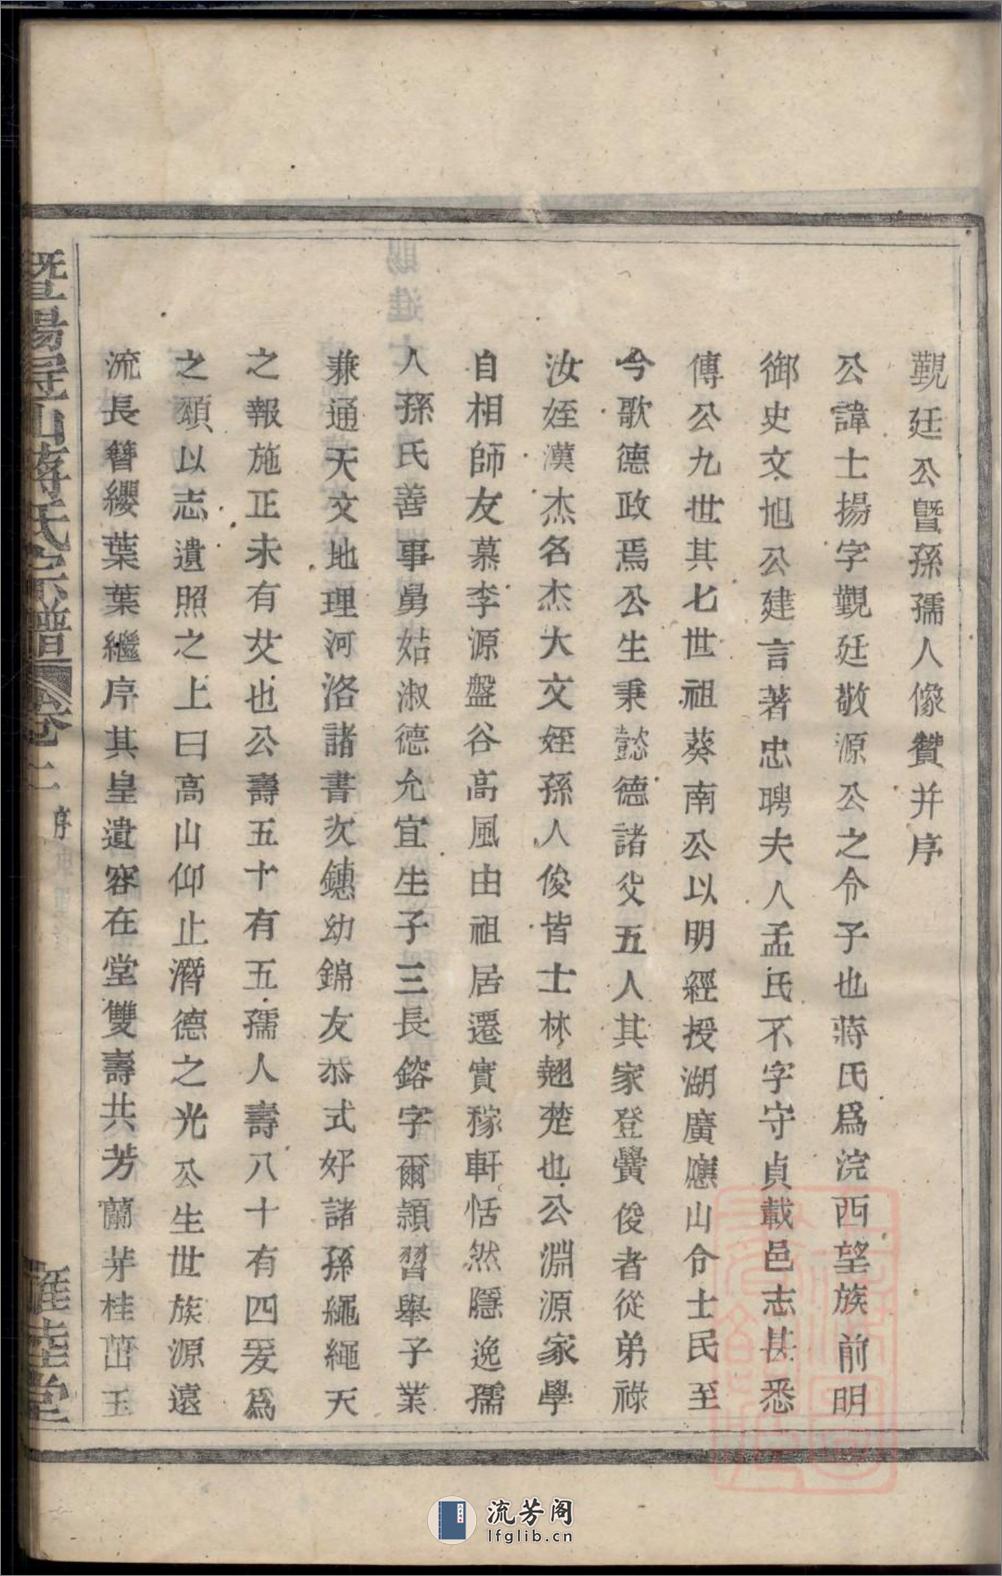 覲廷公暨孫孺人像贊并序
公諱士揚字覲廷敬源公之令子也蔣氏爲浣西望族前明
御史文旭公建言著忠聘夫人孟氏不字守貞載邑志甚悉
傳公九世其七世祖葵南公以明經授湖廣應山令士民至
今歌德政焉公生秉懿德諸父五人其家登黌俊者從弟祿
汝姪漢杰名杰大文姪孫人俊皆士林翹楚也公淵源家學
自相師友慕李源盤谷高風由祖居遷實稼軒恬然隱逸孺
人孫氏善事舅姑淑德允宜生子三長鎔字爾頴習舉子業
兼通天文地理河洛諸書次鏸幼錦友恭式好諸孫繩繩天
之報施正未有艾也公壽五十有五孺人壽八十有四爰爲
之頌以志遺照之上曰高山仰止潛德之光公生世族源遠
流長簪纓葉葉繼序其皇遺容在堂雙壽共芳蘭芽桂茁玉
暨陽冠山蔣氏宗譜 卷二 序
雍睦堂
流芳阁
lfglib.cn